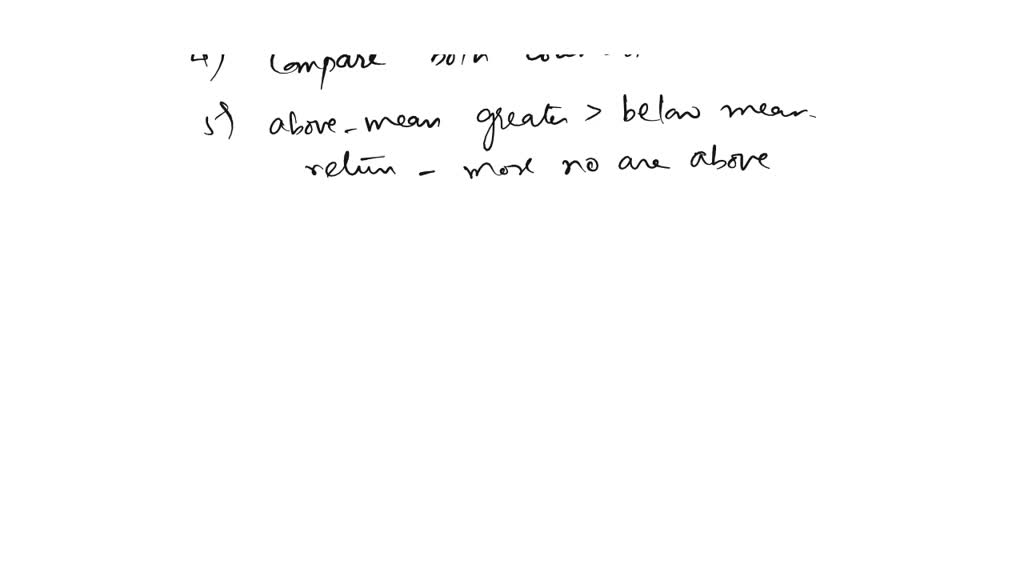 4) Compare both
5) above-mean greater > below mean
return - more no are above